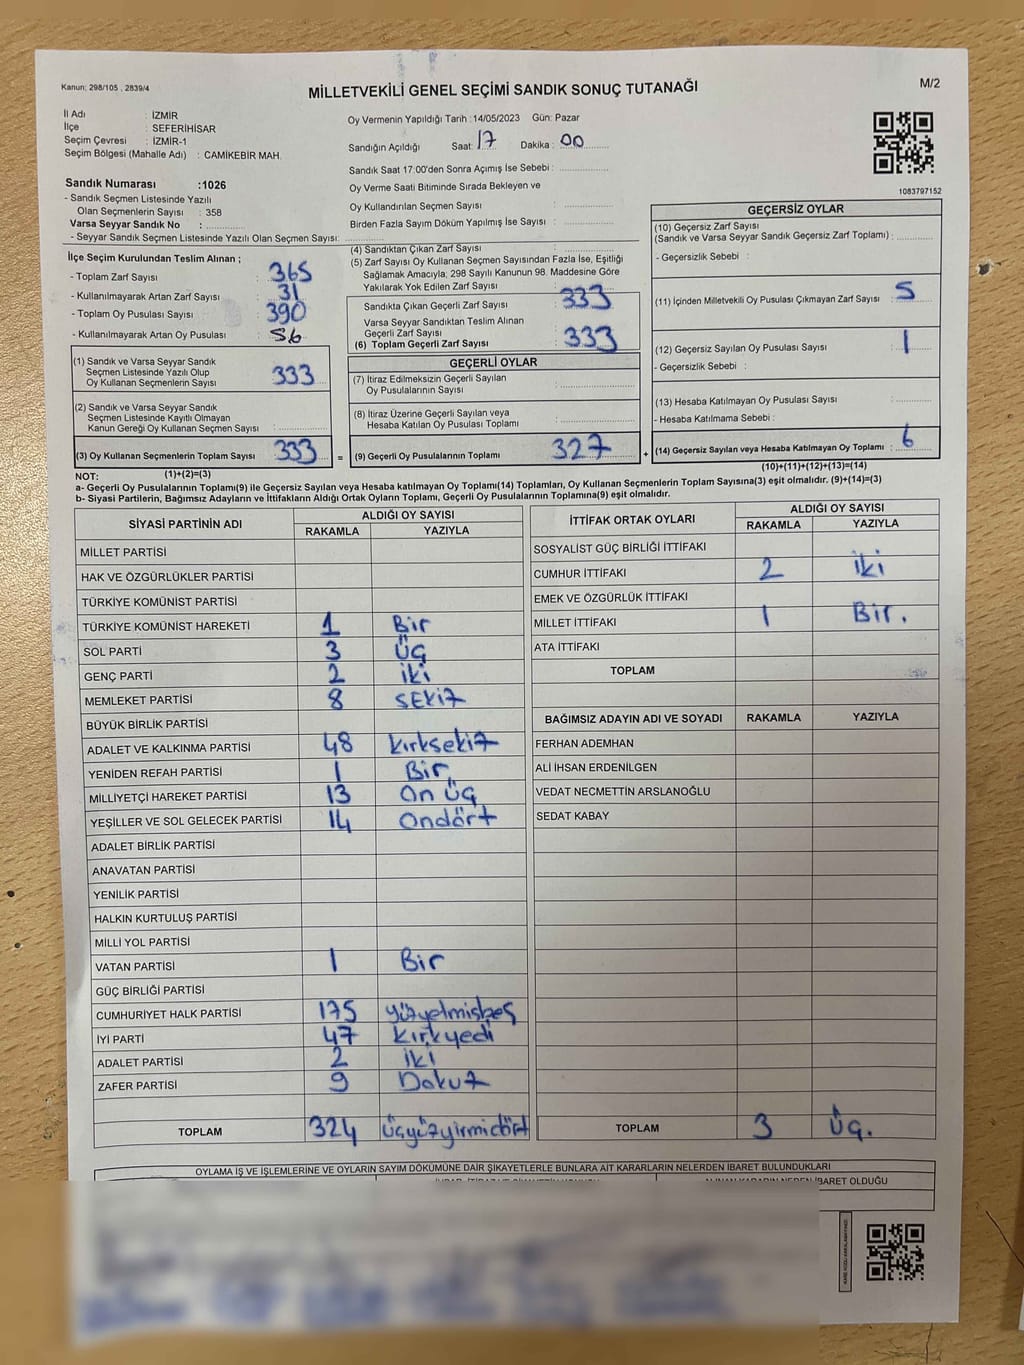 Kanun: 298/105 , 2839/4
MİLLETVEKİLİ GENEL SEÇİMİ SANDIK SONUÇ TUTANAĞI
M/2
İl Adı : İZMİR
İlçe : SEFERİHİSAR
Seçim Çevresi : İZMİR-1
Seçim Bölgesi (Mahalle Adı) : CAMİKEBİR MAH.
Oy Vermenin Yapıldığı Tarih :14/05/2023 Gün: Pazar
Sandığın Açıldığı Saat: 17 Dakika : 00
Sandık Saat 17:00'den Sonra Açımış İse Sebebi :
Oy Verme Saati Bitiminde Sırada Bekleyen ve
Oy Kullandırılan Seçmen Sayısı :
Birden Fazla Sayım Döküm Yapılmış İse Sayısı :
1083797152
Sandık Numarası :1026
- Sandık Seçmen Listesinde Yazılı
Olan Seçmenlerin Sayısı : 358
Varsa Seyyar Sandık No :
- Seyyar Sandık Seçmen Listesinde Yazılı Olan Seçmen Sayısı:
İlçe Seçim Kurulundan Teslim Alınan ;
- Toplam Zarf Sayısı : 365
- Kullanılmayarak Artan Zarf Sayısı : 31
- Toplam Oy Pusulası Sayısı : 390
- Kullanılmayarak Artan Oy Pusulası : 56
(1) Sandık ve Varsa Seyyar Sandık
Seçmen Listesinde Yazılı Olup
Oy Kullanan Seçmenlerin Sayısı : 333
(2) Sandık ve Varsa Seyyar Sandık
Seçmen Listesinde Kayıtlı Olmayan
Kanun Gereği Oy Kullanan Seçmen Sayısı :
(3) Oy Kullanan Seçmenlerin Toplam Sayısı : 333
(1)+(2)=(3)
(4) Sandıktan Çıkan Zarf Sayısı :
(5) Zarf Sayısı Oy Kullanan Seçmen Sayısından Fazla İse, Eşitliği
Sağlamak Amacıyla; 298 Sayılı Kanunun 98. Maddesine Göre
Yakılarak Yok Edilen Zarf Sayısı :
Sandıkta Çıkan Geçerli Zarf Sayısı : 333
Varsa Seyyar Sandıktan Teslim Alınan
Geçerli Zarf Sayısı :
(6) Toplam Geçerli Zarf Sayısı : 333
GEÇERLİ OYLAR
(7) İtiraz Edilmeksizin Geçerli Sayılan
Oy Pusulalarının Sayısı :
(8) İtiraz Üzerine Geçerli Sayılan veya
Hesaba Katılan Oy Pusulası Toplamı :
= (9) Geçerli Oy Pusulalarının Toplamı : 327
GEÇERSİZ OYLAR
(10) Geçersiz Zarf Sayısı
(Sandık ve Varsa Seyyar Sandık Geçersiz Zarf Toplamı) :
- Geçersizlik Sebebi :
(11) İçinden Milletvekili Oy Pusulası Çıkmayan Zarf Sayısı : 5
(12) Geçersiz Sayılan Oy Pusulası Sayısı : 1
- Geçersizlik Sebebi :
(13) Hesaba Katılmayan Oy Pusulası Sayısı :
- Hesaba Katılmama Sebebi :
+ (14) Geçersiz Sayılan veya Hesaba Katılmayan Oy Toplamı : 6
(10)+(11)+(12)+(13)=(14)
NOT:
a- Geçerli Oy Pusulasının Toplamı(9) ile Geçersiz Sayılan veya Hesaba katılmayan Oy Toplamı(14) Toplamları, Oy Kullanan Seçmenlerin Toplam Sayısına(3) eşit olmalıdır. (9)+(14)=(3)
b- Siyasi Partilerin, Bağımsız Adayların ve İttifakların Aldığı Ortak Oyların Toplamı, Geçerli Oy Pusulalarının Toplamına(9) eşit olmalıdır.
SİYASİ PARTİNİN ADI ALDIĞI OY SAYISI
RAKAMLA YAZIYLA
MİLLET PARTİSİ
HAK VE ÖZGÜRLÜKLER PARTİSİ
TÜRKİYE KOMÜNİST PARTİSİ
TÜRKİYE KOMÜNİST HAREKETİ 1 Bir
SOL PARTİ 3 üç
GENÇ PARTİ 2 iki
MEMLEKET PARTİSİ 8 SEKiz
BÜYÜK BİRLİK PARTİSİ
ADALET VE KALKINMA PARTİSİ 48 kırksekiz
YENİDEN REFAH PARTİSİ 1 Bir
MİLLİYETÇİ HAREKET PARTİSİ 13 on üç
YEŞİLLER VE SOL GELECEK PARTİSİ 14 ondört
ADALET BİRLİK PARTİSİ
ANAVATAN PARTİSİ
YENİLİK PARTİSİ
HALKIN KURTULUŞ PARTİSİ
MİLLİ YOL PARTİSİ
VATAN PARTİSİ 1 Bir
GÜÇ BİRLİĞİ PARTİSİ
CUMHURİYET HALK PARTİSİ 175 yüzyetmişbeş
İYİ PARTİ 47 kırkyedi
ADALET PARTİSİ 2 iki
ZAFER PARTİSİ 9 Dokuz
TOPLAM 324 üçyüzyirmidört
İTTİFAK ORTAK OYLARI ALDIĞI OY SAYISI
RAKAMLA YAZIYLA
SOSYALİST GÜÇ BİRLİĞİ İTTİFAKI
CUMHUR İTTİFAKI 2 iki
EMEK VE ÖZGÜRLÜK İTTİFAKI
MİLLET İTTİFAKI 1 Bir.
ATA İTTİFAKI
TOPLAM
BAĞIMSIZ ADAYIN ADI VE SOYADI RAKAMLA YAZIYLA
FERHAN ADEMHAN
ALİ İHSAN ERDENİLGEN
VEDAT NECMETTİN ARSLANOĞLU
SEDAT KABAY
TOPLAM 3 üç.
OYLAMA İŞ VE İŞLEMLERİNE VE OYLARIN SAYIM DÖKÜMÜNE DAİR ŞİKAYETLERLE BUNLARA AİT KARARLARIN NELERDEN İBARET BULUNDUKLARI
ALINAN KARARIN NEDEN İBARET OLDUĞU